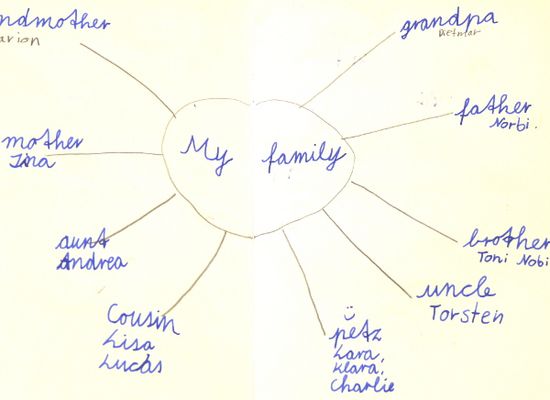 ndmother
arion
grandpa
Dietmar
father
Norbi.
mother
Tina
My family
aunt
Andrea
brother
Toni Nobi
uncle
Torsten
Cousin
Lisa
Lucas
petz
Lara,
Klara,
Charlie